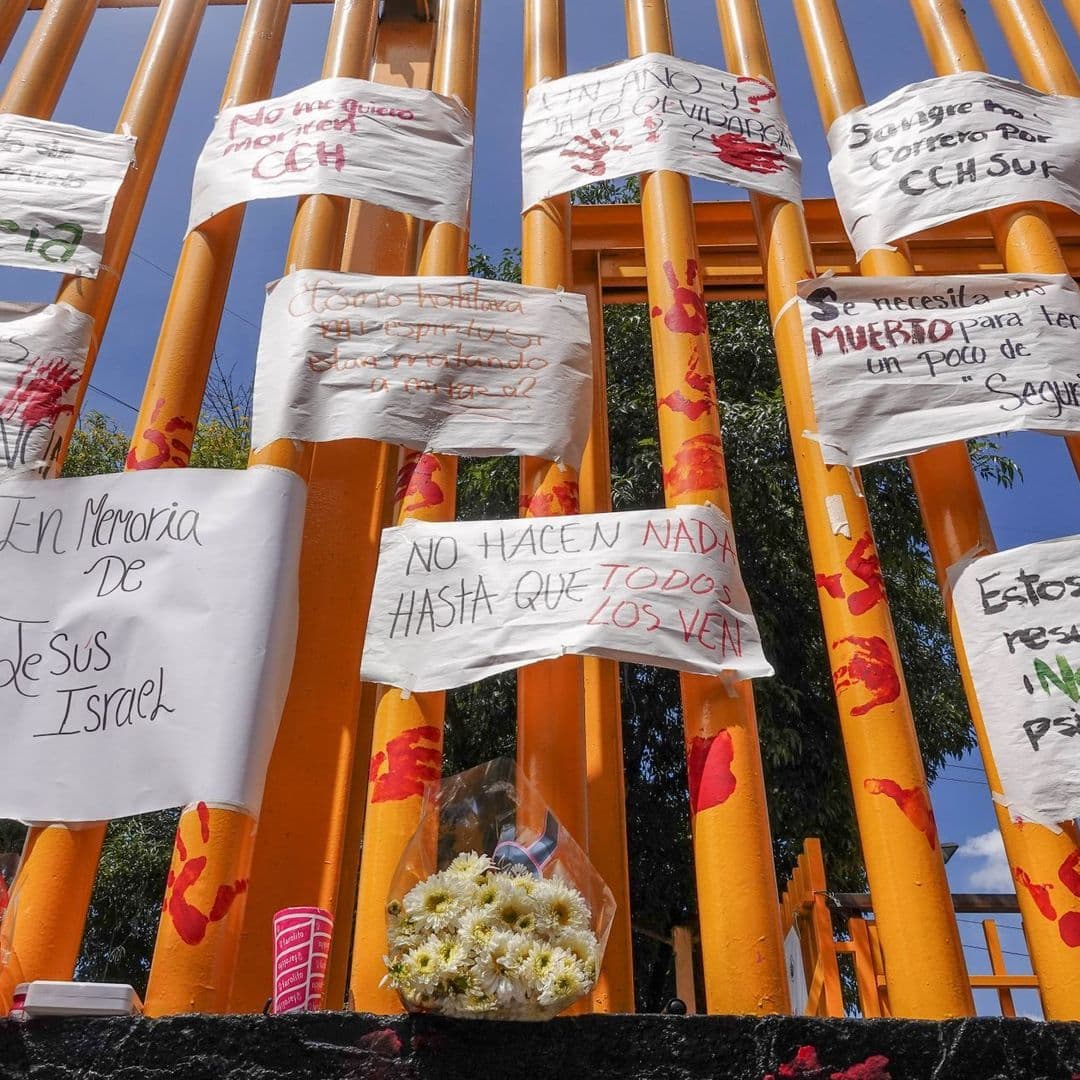 No me quiero
morir en
CCH
UN AÑO Y ?
YA LO OLVIDARON
Sangre ha
Correro Por
CCH SUR
¿Como hablara
mi espiritu si
estan matando
a mi raza?
Se necesita un
MUERTO para tener
un poco de
"Seguri
En Memoria
De
Jesús
Israel
NO HACEN NADA
HASTA QUE TODOS
LOS VEN
Estos
resu
¡N
psi